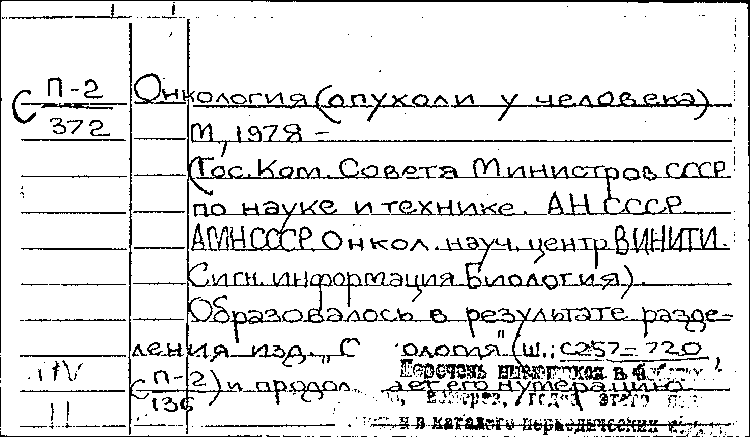 С П-2/372 Онкология (опухоли у человека)
М, 1978 -
(Гос. Ком. Совета Министров СССР
по науке и технике. АН СССР
АМН СССР. Онкол. науч. центр ВИНИТИ.
Сигн. информация Биология).
Образовалось в результате разде-
ления изд. „С ология" (ш.: С257-720,
С П-2/136) и продол ает его нумерацию
Перечень имеющихся в
этого
в каталоге периодических